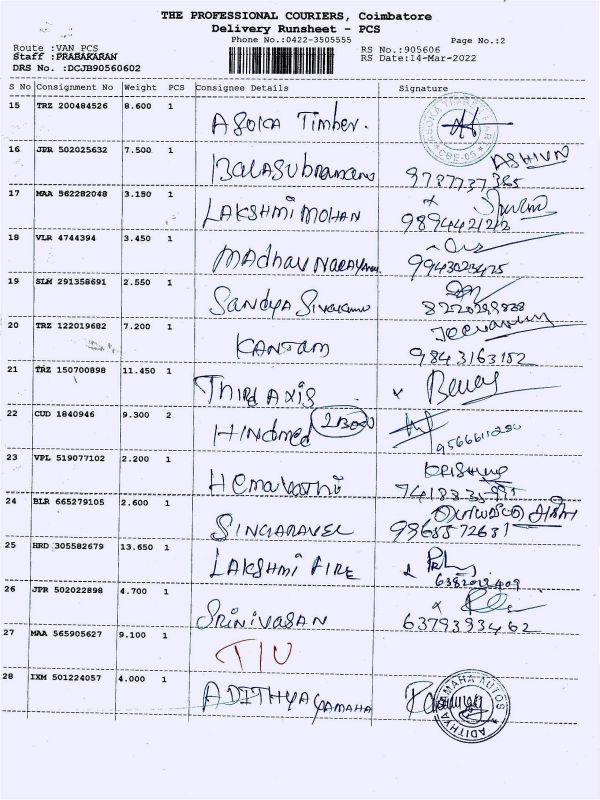 THE PROFESSIONAL COURIERS, Coimbatore
Delivery Runsheet - PCS
Phone No.:0422-3505555 Page No.:2
Route :VAN PCS RS No.:905606
Staff :PRABAKARAN RS Date:14-Mar-2022
DRS No. :DCJB90560602
S No Consignment No Weight PCS Consignee Details Signature
15 TRZ 200484526 8.600 1
ASOKA Timber.
16 JPR 502025632 7.500 1
ASHIVN
BALASubramani 9787737385
17 MAA 562282048 3.150 1
LAKSHMI MOHAN 9894421212
18 VLR 4744394 3.450 1
Madhav Narayanan 9943023425
19 SLM 291358691 2.550 1
Sandya Sivakumar 8220299838
20 TRZ 122019682 7.200 1
KANTAM 9843163182
21 TRZ 150700898 11.450 1
Third AXIS
22 CUD 1840946 9.300 2
HINDMED
23 VPL 519077102 2.200 1
Hemavathi
24 BLR 665279105 2.600 1
SINGARAVEL
25 HRD 305582679 13.650 1
LAKSHMI FIRE
26 JPR 502022898 4.700 1
SRINIVASAN 6379393462
27 MAA 565905627 9.100 1
T/U
28 IXM 501224057 4.000 1
ADITHYA YAMAHA
ADITHYA YAMAHA AUTOS